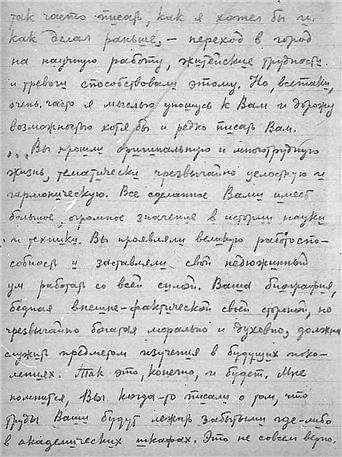 так часто писать, как я хотел бы и
как делал раньше, – переход в город
на научную работу, житейские трудности
и тревоги способствовали этому. Но, всетаки,
очень часто я мыслью уношусь к Вам и дорожу
возможностью хотя бы и редко писать Вам.
... Вы прошли оригинальную и многотрудную
жизнь, тематически чрезвычайно целостную и
гармоническую. Все сделанное Вами имеет
большое, огромное значение в истории науки
и техники. Вы проявляли великую работоспо-
собность и заставляли свой недюжинный
ум работать со всей силой. Ваша биография,
бедная внешне-фактической своей стороной, но
чрезвычайно богатая морально и духовно, должна
служить предметом изучения в будущих поко-
лениях. Так это, конечно, и будет. Мне
помнится, Вы когда-то писали о том, что
труды Ваши будут лежать забытыми где-либо
в академических шкафах. Это не совсем верно.